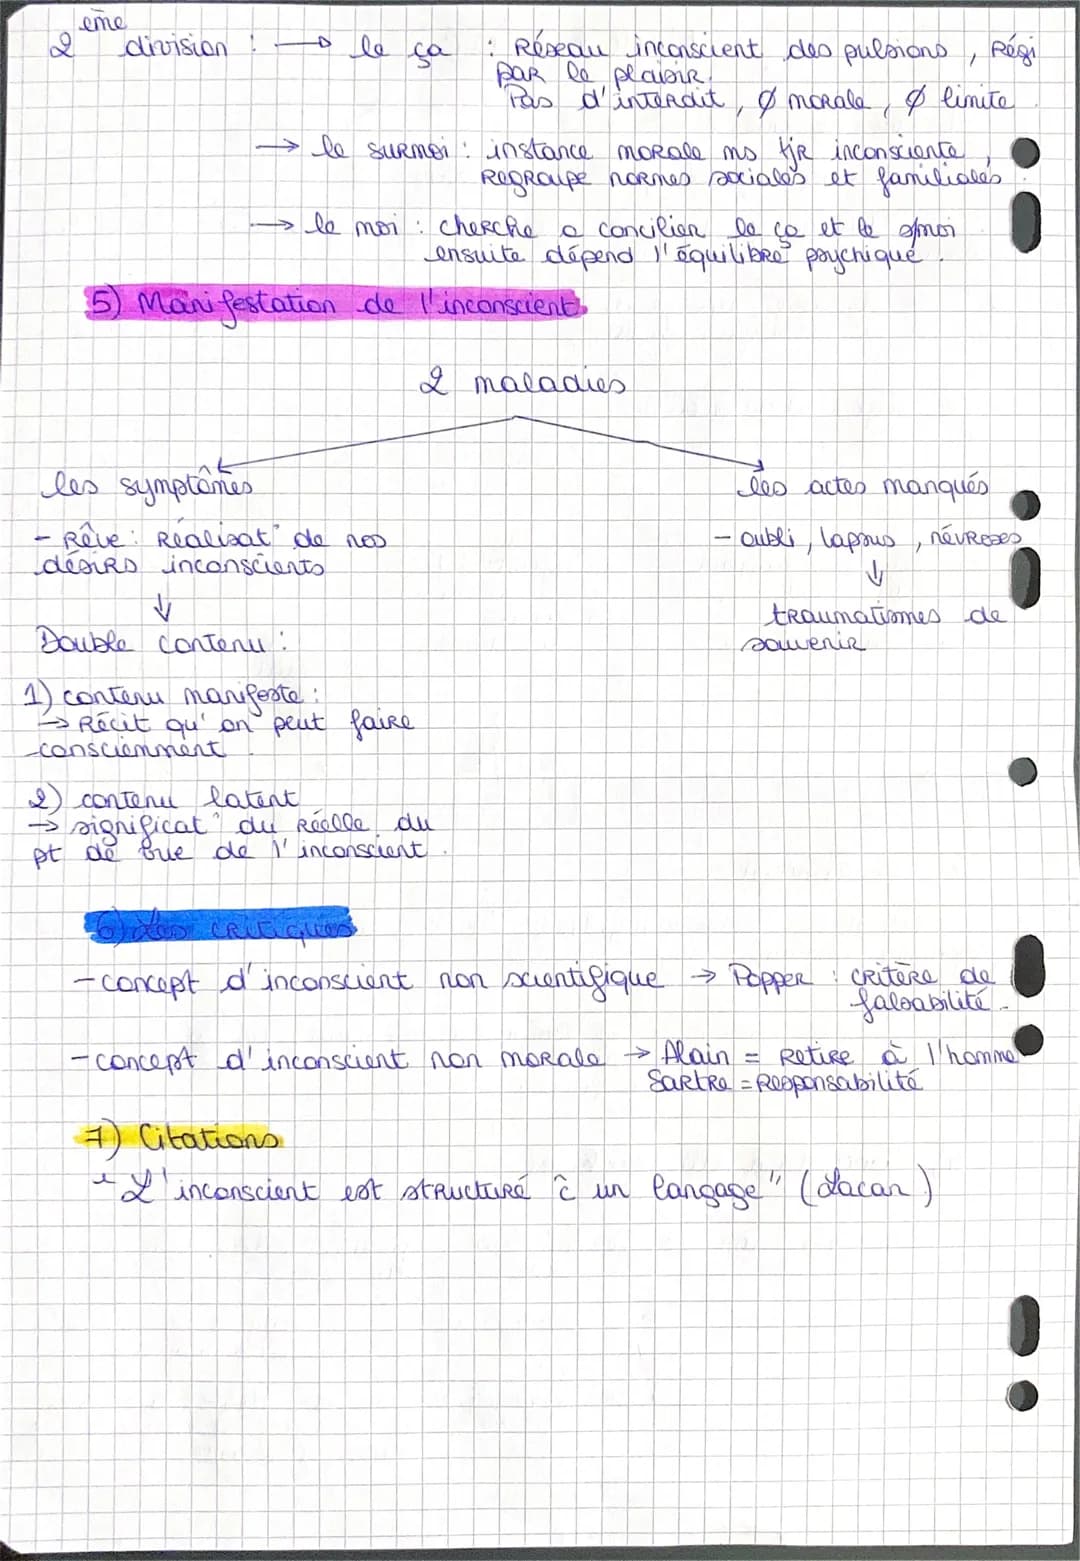 2ème division : → le ça : Réseau inconscient des pulsions, Régi
par le plaisir.
Pas d'interdit, ∅ morale, ∅ limite.
→ le surmoi : instance morale ms tjr inconsciente,
Regroupe normes sociales et familiales.
→ le moi : cherche a concilier le ça et le
ensuite dépend l'équilibre psychique.
5) Manifestation de l'inconscient
2 maladies
les symptômes
les actes manqués
- Rêve : Réalisat° de nos
désirs inconscients
- oubli, lapsus, névroses
↓
↓
traumatismes de
souvenir
Double contenu :
1) contenu manifeste :
→ Récit qu'on peut faire
consciemment.
2) contenu latent
→ significat° du réelle du
pt de vue de l'inconscient.
6) Les critiques
- concept d'inconscient non scientifique → Popper : critère de
falsabilité.
- concept d'inconscient non morale → Alain = Retire à l'homme
Sartre = Responsabilité
7) Citations
"L'inconscient est structuré c̄ un langage" (Lacan)